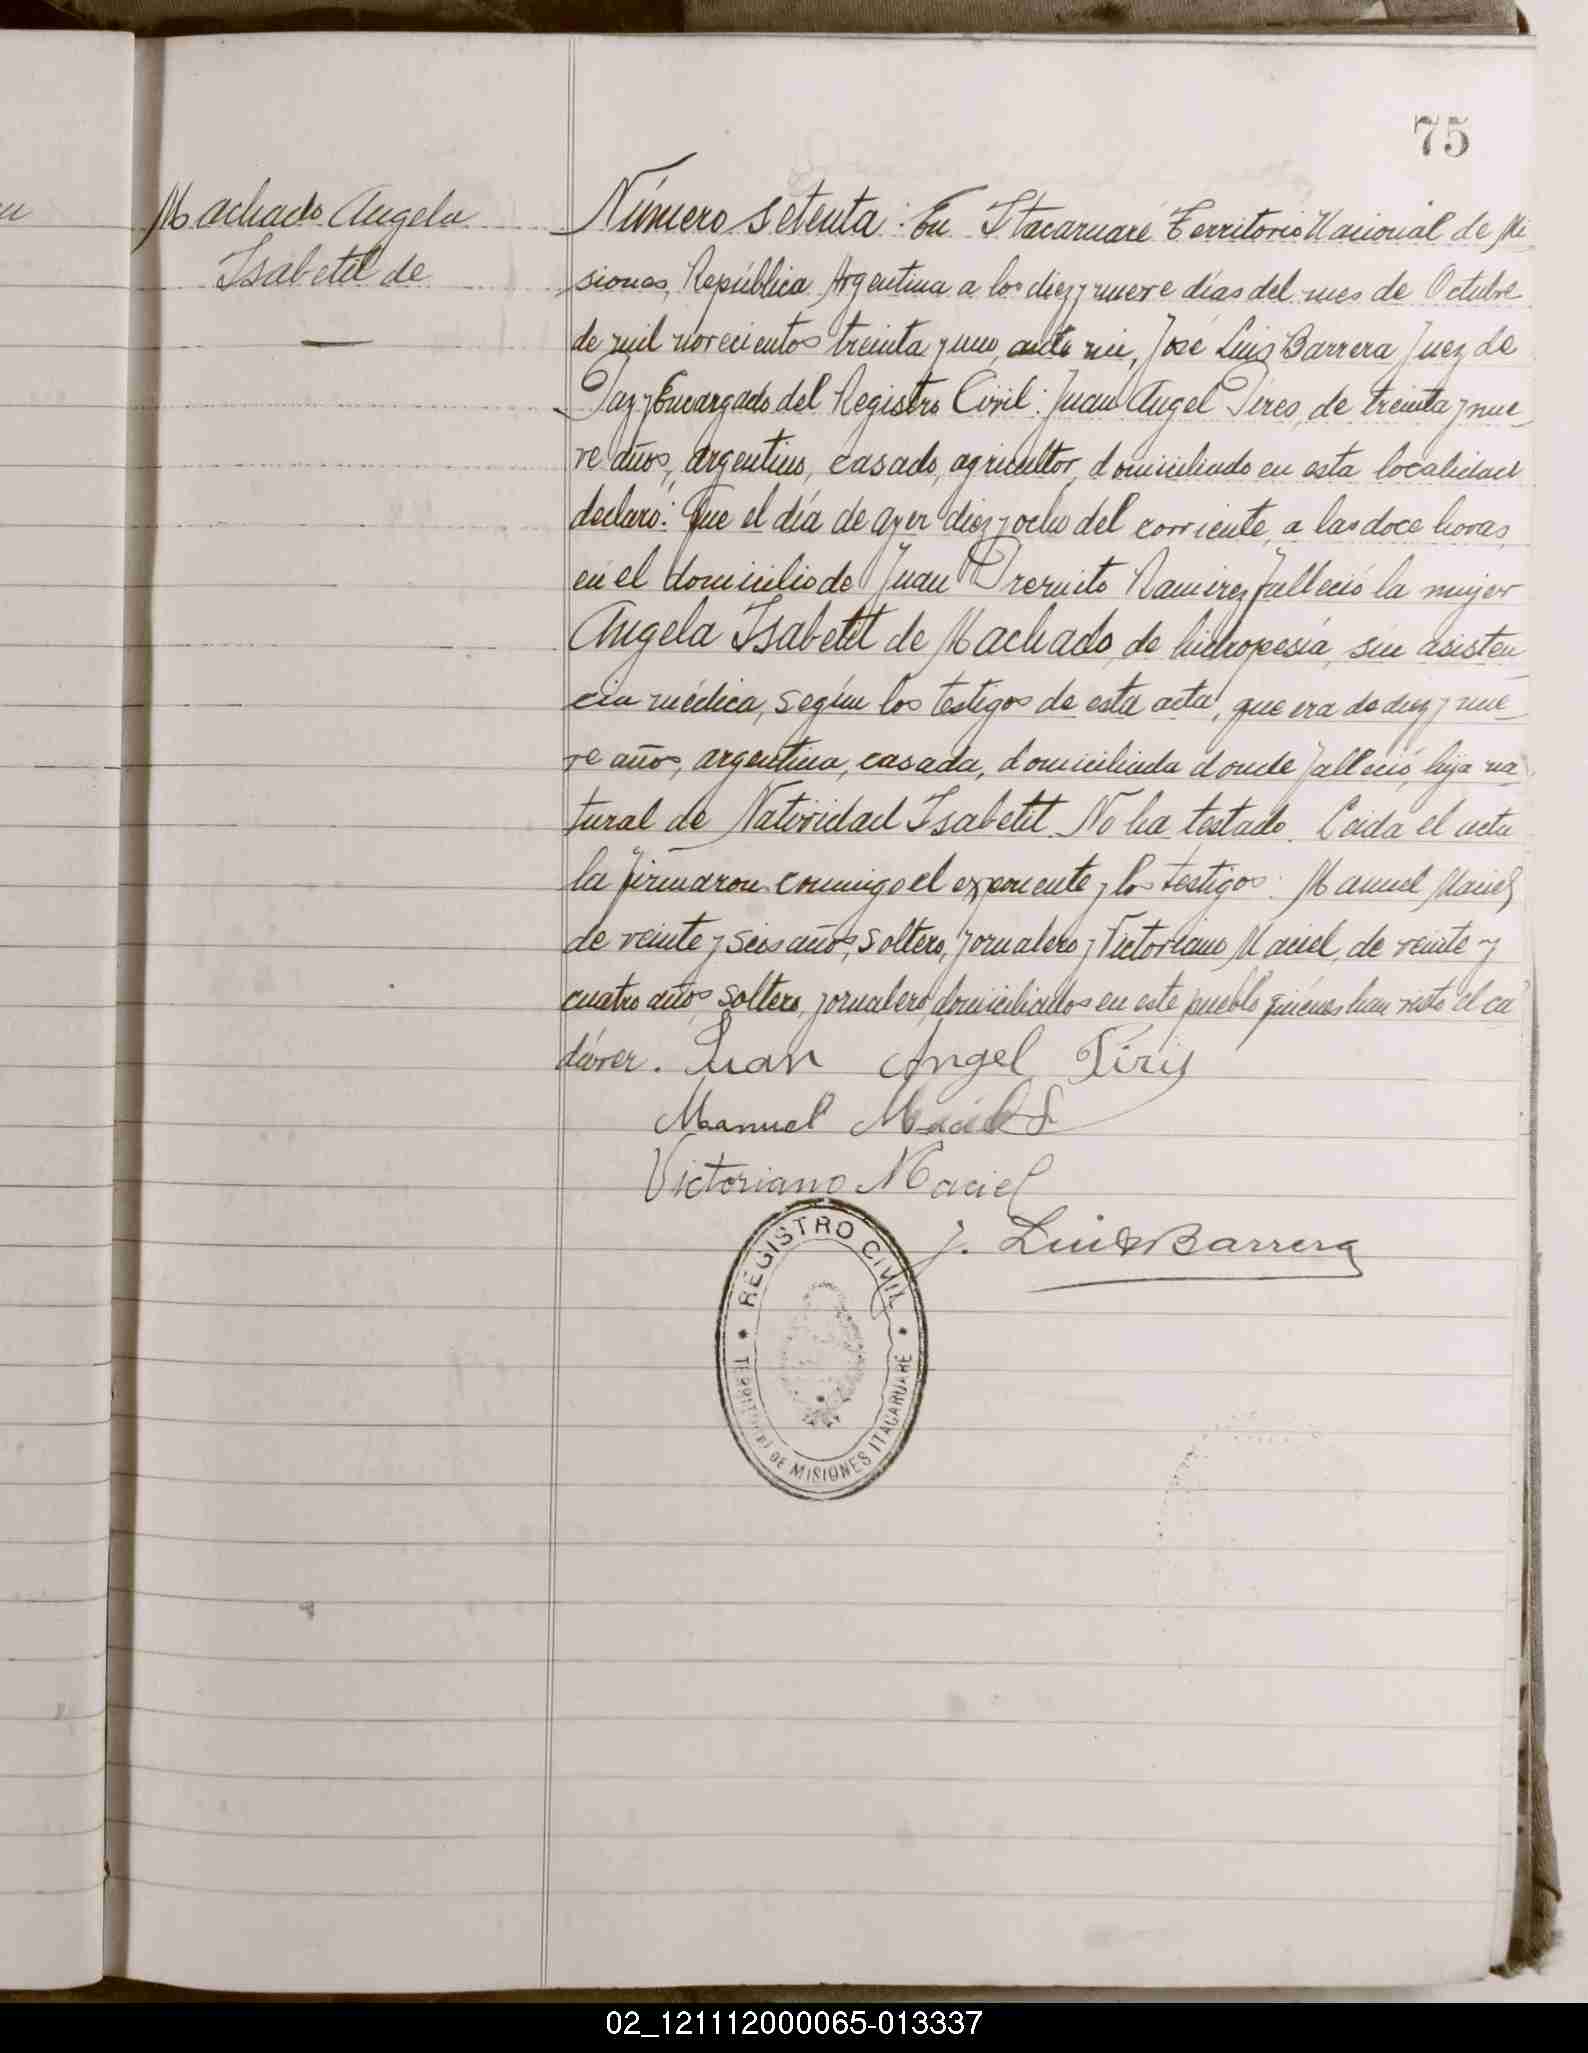 75
Machado Angela
Isabetil de
Número setenta: En Itacaruaré Territorio Nacional de Mi
siones, República Argentina a los diez y nueve días del mes de Octubre
de mil novecientos treinta y uno, ante mi, José Luis Barrera Juez de
Paz y Encargado del Registro Civil: Juan Angel Pires, de treinta y nue
ve años, argentino, casado, agricultor, domiciliado en esta localidad
declaró: Que el día de ayer diez y ocho del corriente, a las doce horas,
en el domicilio de Juan Ramirez falleció la mujer
Angela Isabetil de Machado, de hidropesía, sin asisten
cia médica, según los testigos de esta acta, que era de diez y nue
ve años, argentina, casada, domiciliada donde falleció, hija na
tural de Natividad Isabetil. No ha testado. Leida el acta
la firmaron conmigo el exponente y los testigos: Manuel Maciel
de veinte y seis años, soltero, jornalero y Victoriano Maciel, de veinte y
cuatro años, soltero, jornalero, domiciliados en este pueblo quiénes han visto el ca
dáver. Juan Angel Piris
Manuel Maciel
Victoriano Maciel
J. Luis Barrera
REGISTRO CIVIL
TERRITORIO DE MISIONES ITACARUARÉ
02_121112000065-013337